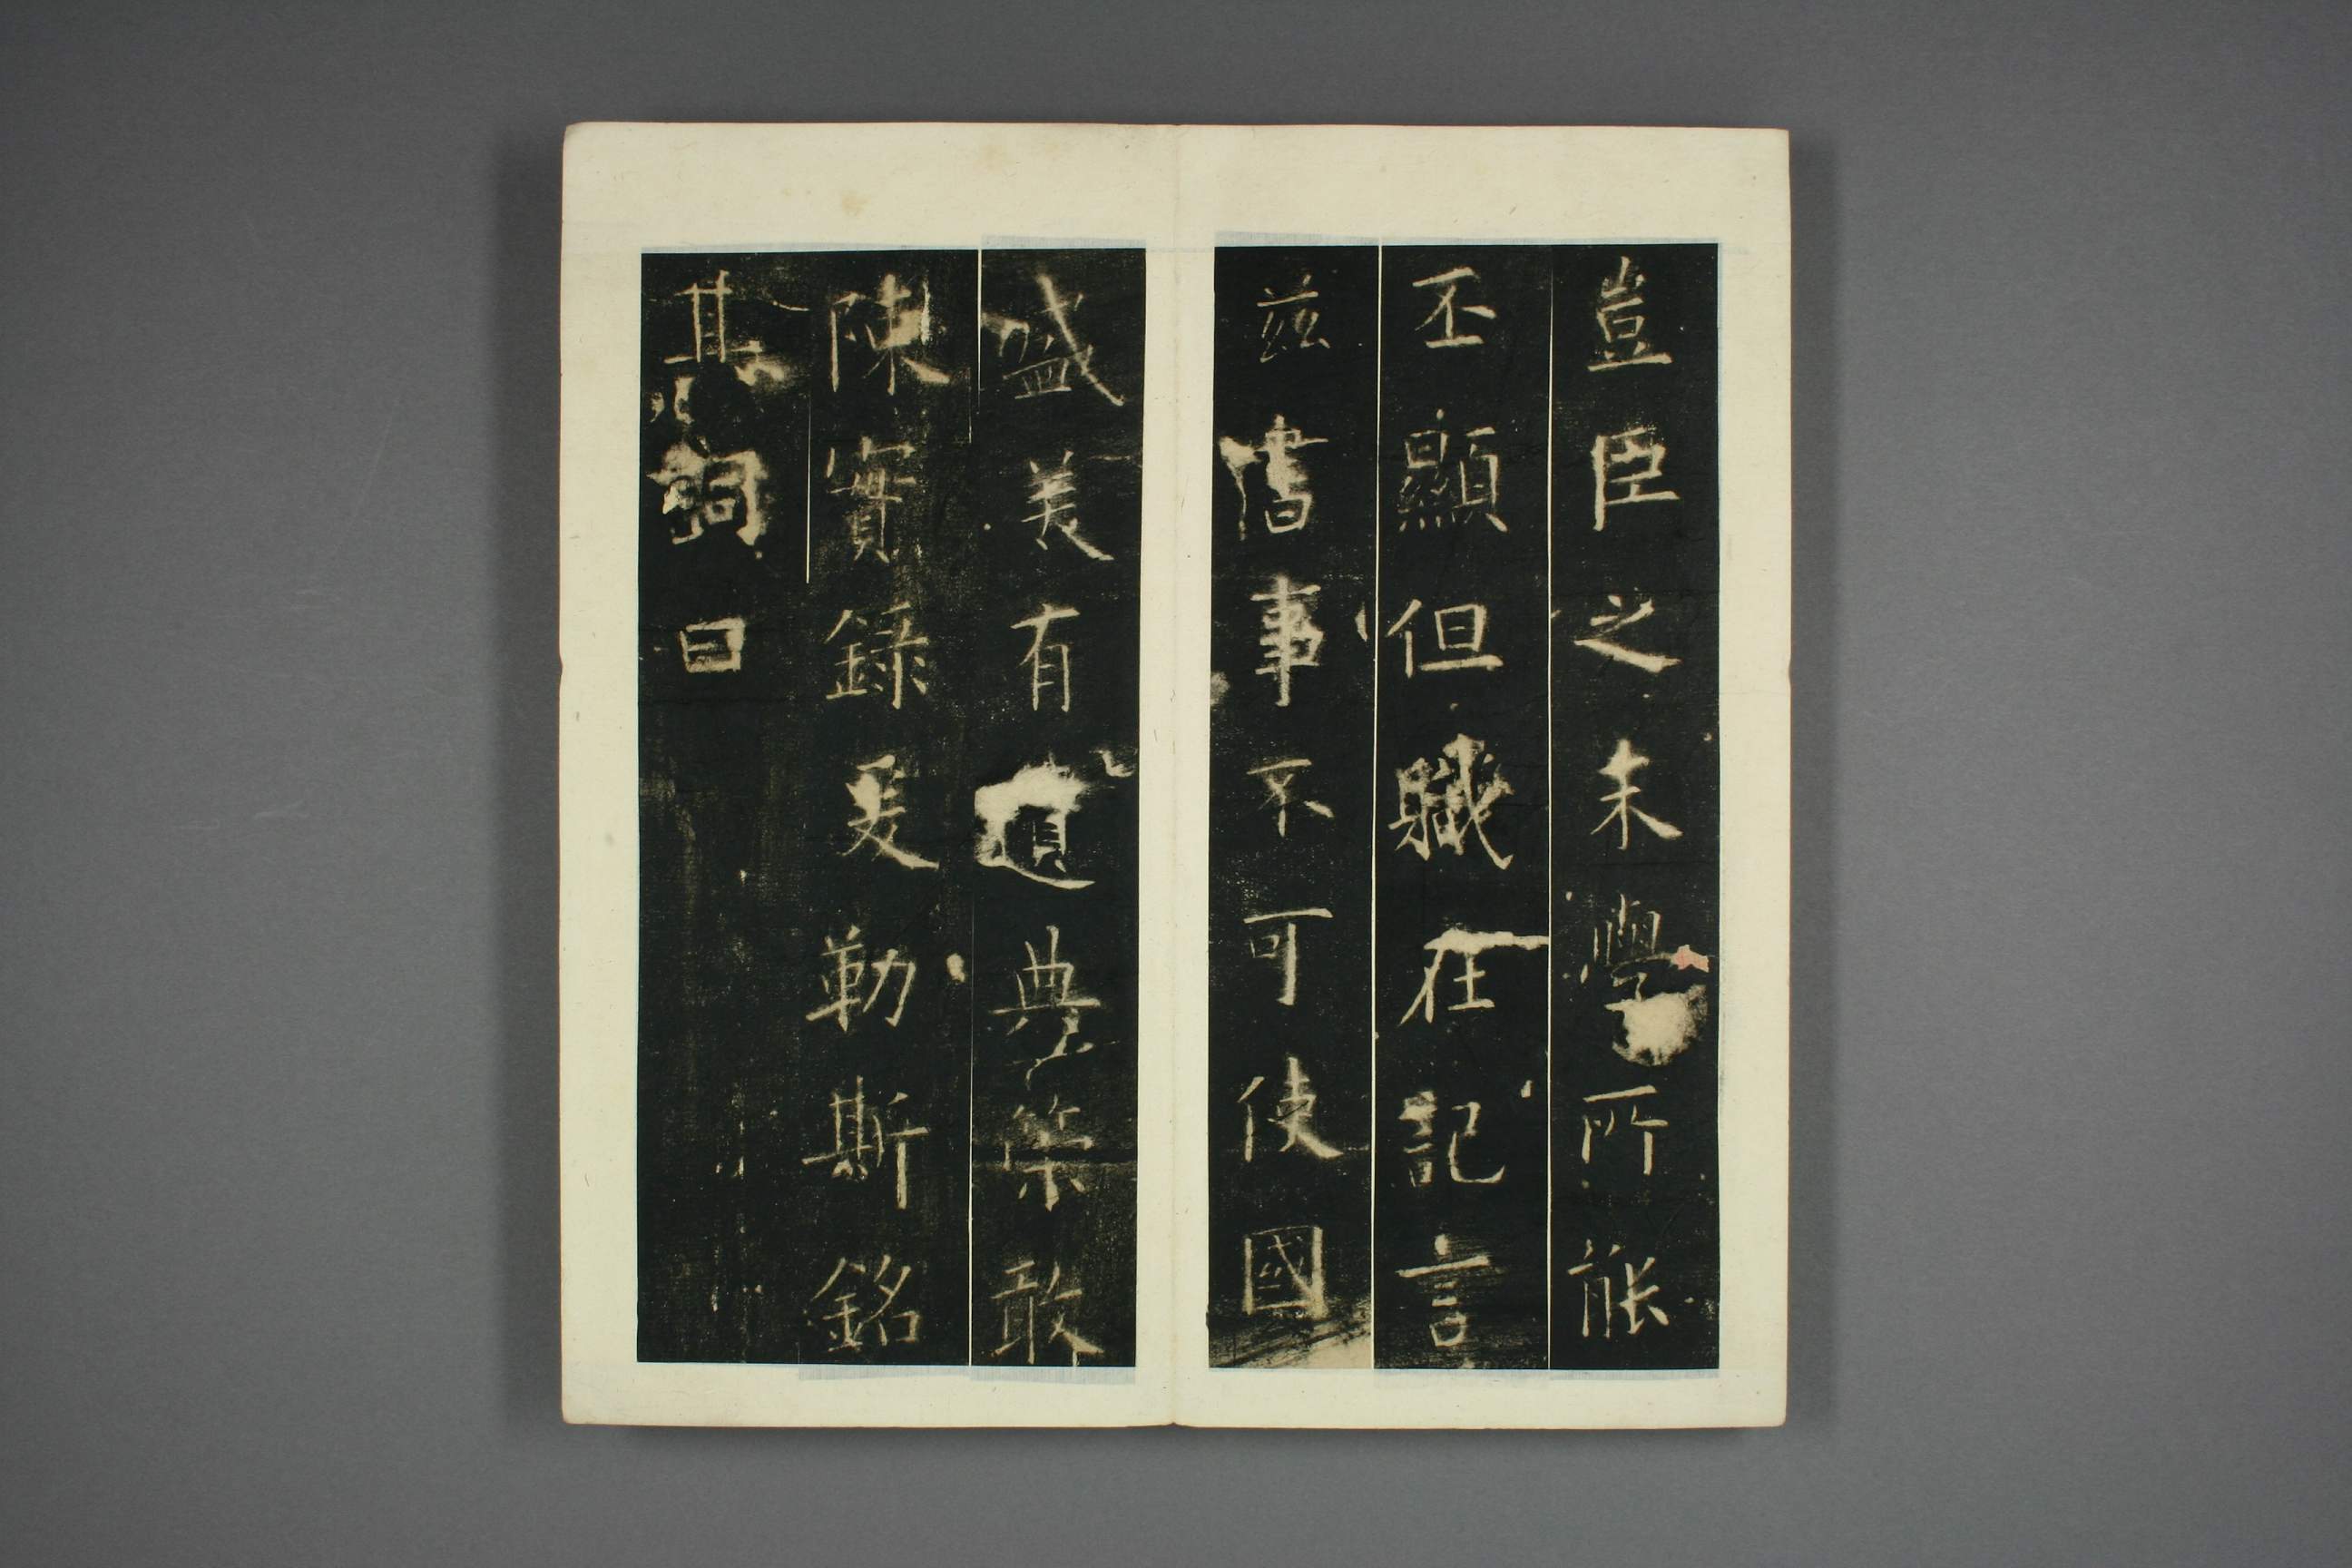 豈臣之末學所能
丕顯但職在記言
茲書事不可使國
盛美有遺典策敢
陳實錄爰勒斯銘
其詞曰